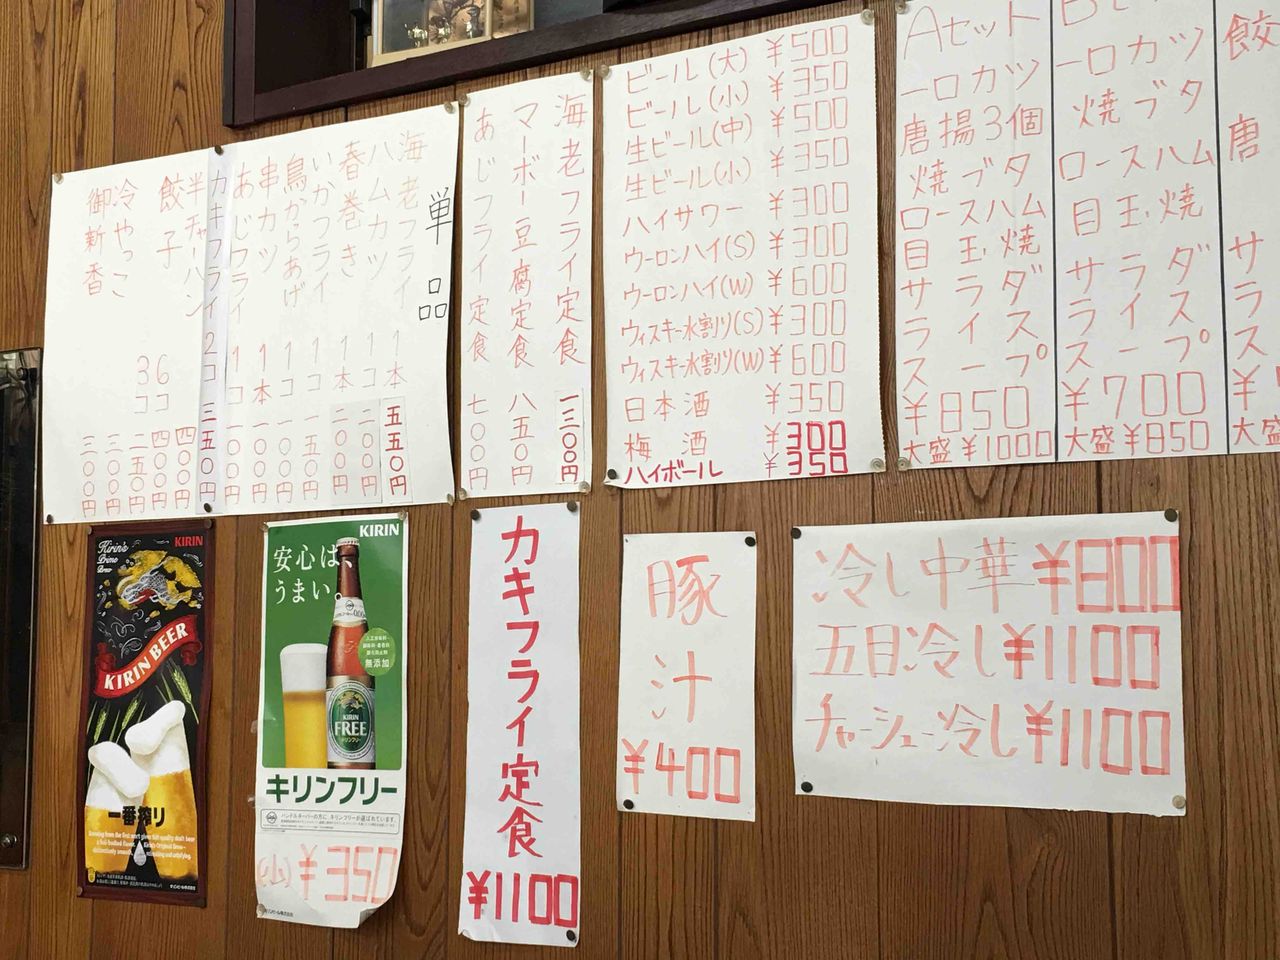 単品
海老フライ 1本 五五〇円
ハムカツ 1コ 二〇〇円
春巻き 1本 二〇〇円
いかフライ 1コ 一五〇円
鳥からあげ 1コ 一〇〇円
串カツ 1本 一〇〇円
あじフライ 1コ 一〇〇円
カキフライ 2コ 三五〇円
半チャーハン 四〇〇円
餃子 6コ 四〇〇円
3コ 二五〇円
冷やっこ 二〇〇円
御新香 三〇〇円
海老フライ定食 一三〇〇円
マーボー豆腐定食 八五〇円
あじフライ定食 七〇〇円
ビール(大) ¥500
ビール(小) ¥350
生ビール(中) ¥500
生ビール(小) ¥350
ハイサワー ¥300
ウーロンハイ(S) ¥300
ウーロンハイ(W) ¥600
ウィスキー水割り(S) ¥300
ウィスキー水割り(W) ¥600
日本酒 ¥350
梅酒 ¥300
ハイボール ¥350
Aセット
一口カツ
唐揚3個
焼ブタ
ロースハム
目玉焼
サラダ
ライス
スープ
¥850
大盛¥1000
一口カツ
焼ブタ
ロースハム
目玉焼
サラダ
ライス
スープ
¥700
大盛¥850
餃
唐
サ
ラ
ス
¥
大盛
Kirin's Prime Brew
KIRIN
KIRIN BEER
一番搾り
KIRIN
安心は、
うまい。
無添加
KIRIN
FREE
キリンフリー
キリンフリー
ハンドルキーパーの方に、キリンフリーが選ばれています。
(小)¥350
カキフライ定食
¥1100
豚汁
¥400
冷し中華¥800
五目冷し¥1100
チャーシュー冷し¥1100